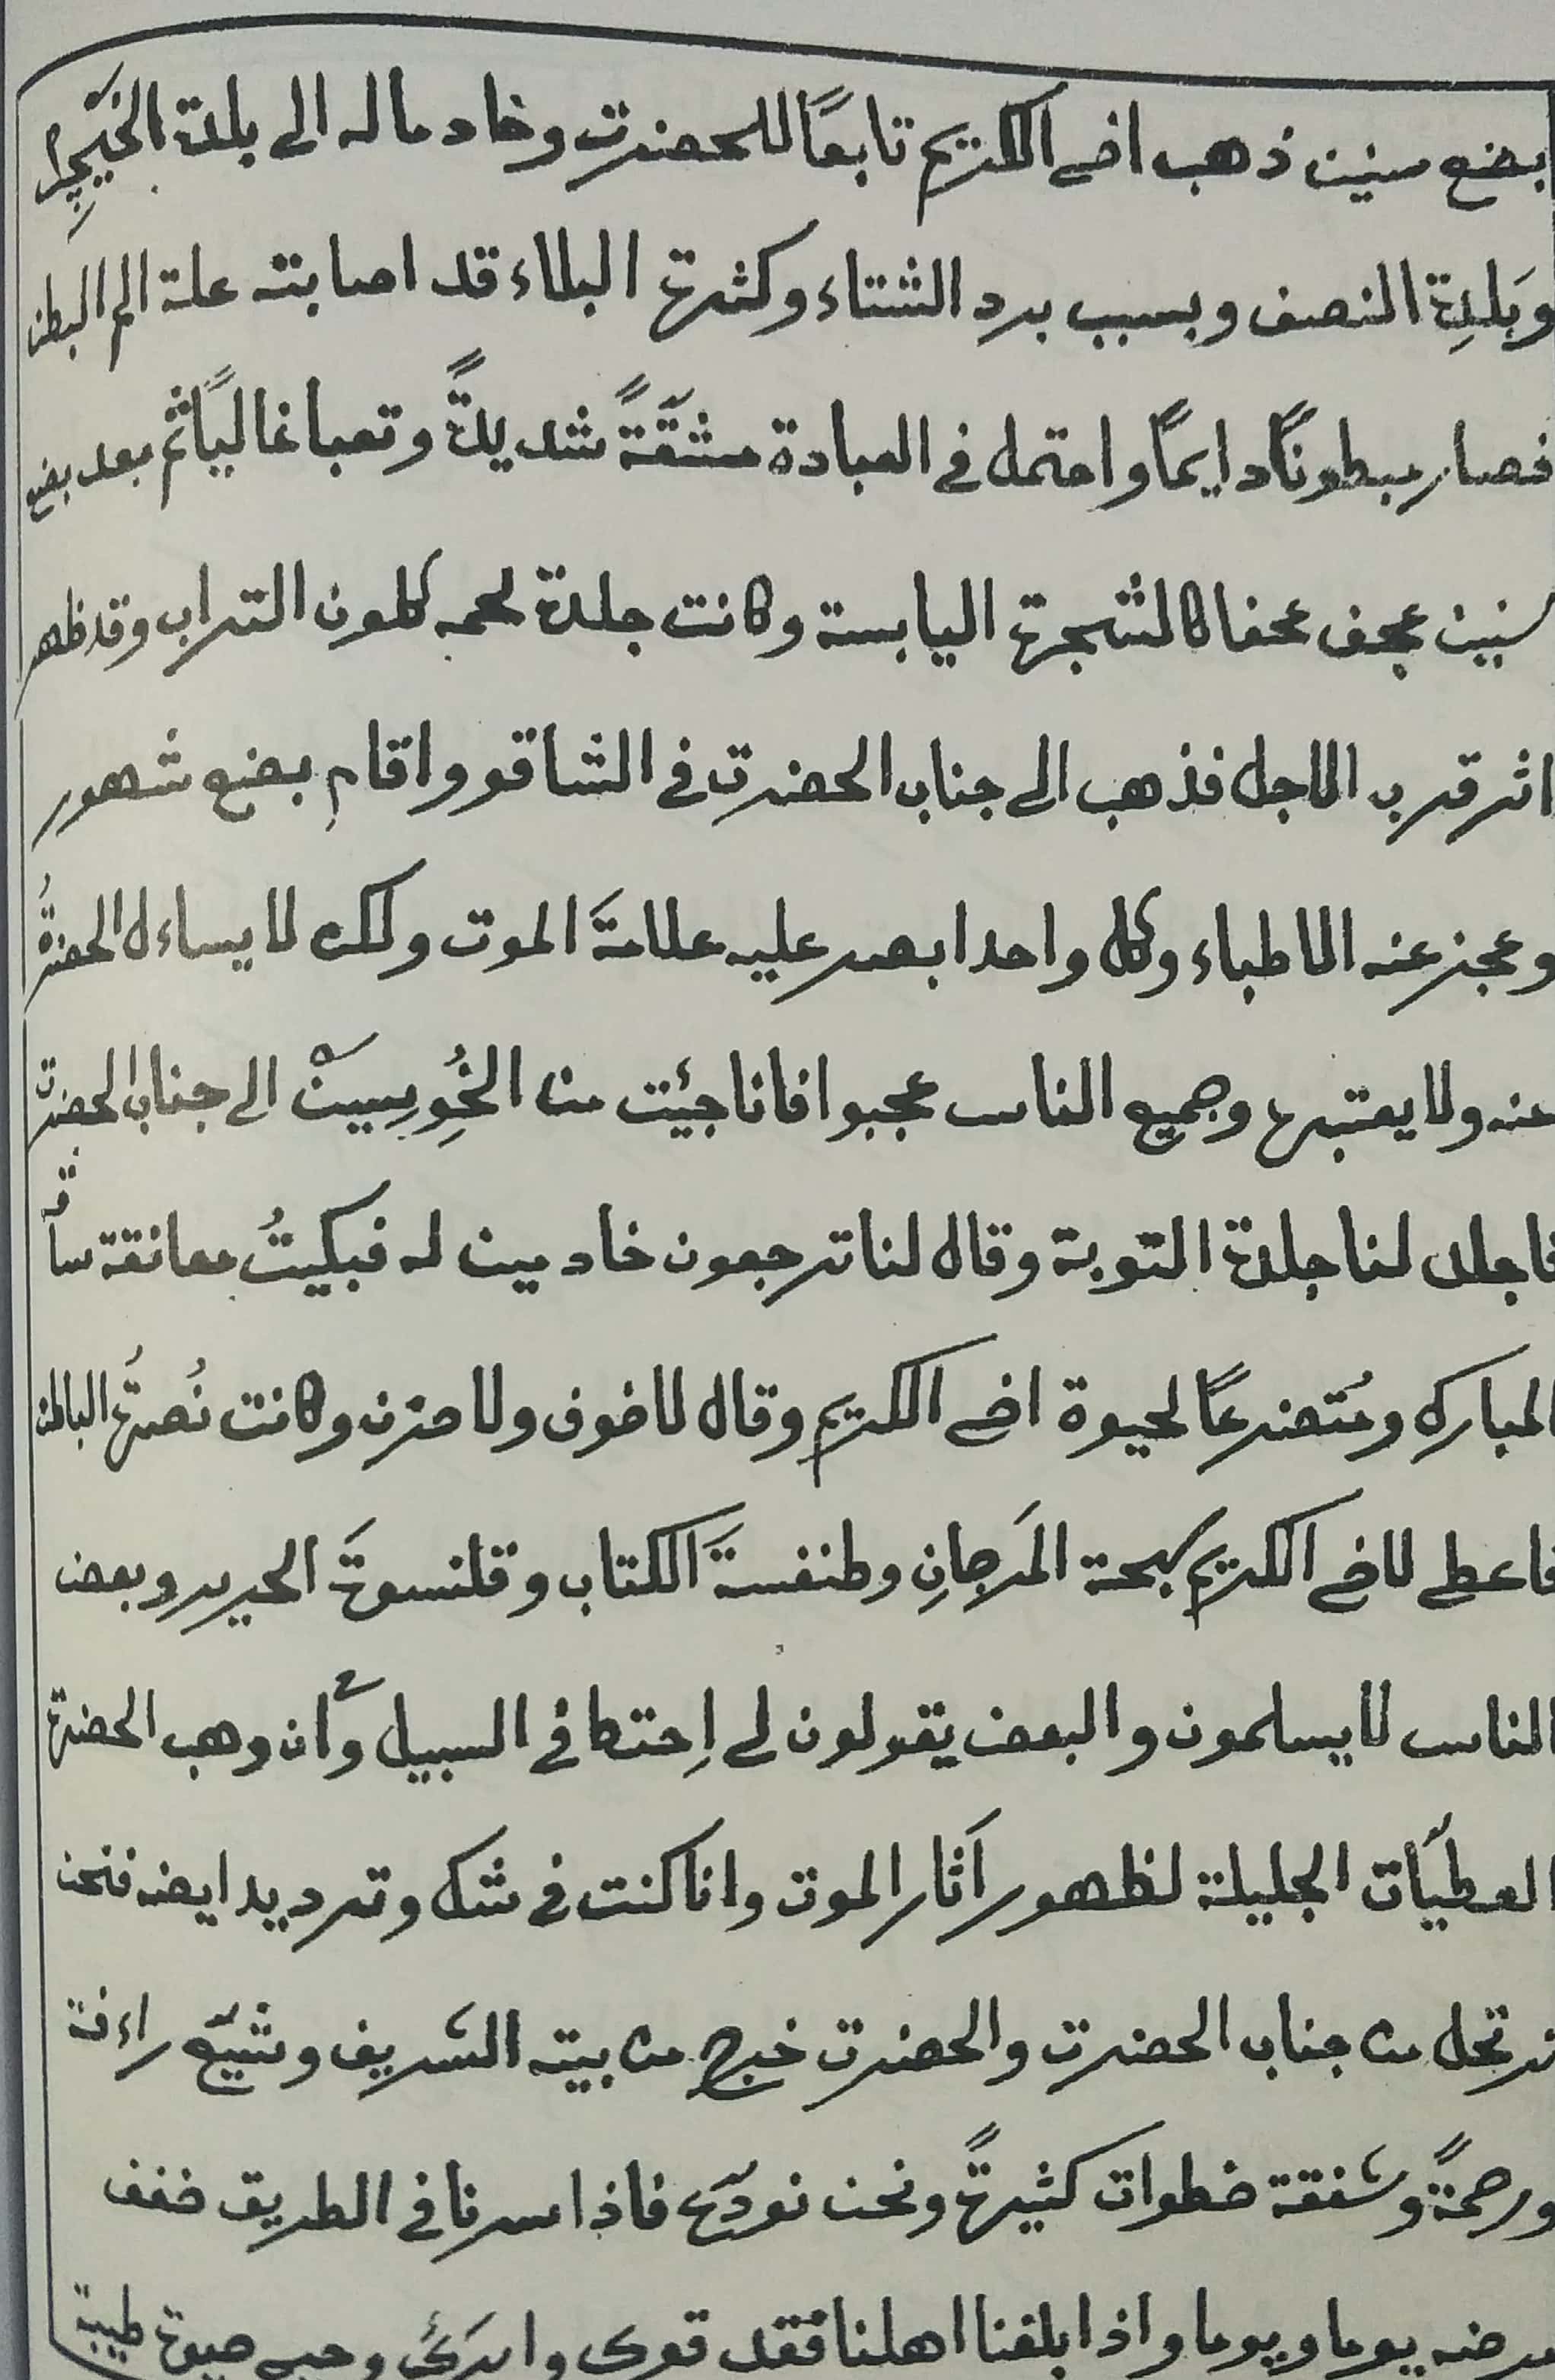 بضع سنين ذهب اخى الكريم تابعًا للحضرت وخادما له الى بلدة الخَيْجِرِ
وبَلدِة النصف وبسبب برد الشتاء وكثرة البلاء قد اصابته علة الم البطن
فصار مبطونًا دايمًا واحتمل في العبادة مشقّةً شديدةً وتعبا غاليًا ثم بعد بضع
سنين عجف عجفا كالشجرة اليابسة وكانت جلدة لحمه كلون التراب وقد ظهر
اثر قرب الاجل فذهب الى جناب الحضرت في الشاقو واقام بضع شهور
وعجز عنه الاطباء وكل واحد ابصر عليه علامةَ الموت ولكن لا يساءل الحضرةُ
عنه ولا يعتبره وجميع الناس عجبوا فانا جئت من الخُوِيسِينْ الى جناب الحضرت
فاجلد لنا جلدة التوبة وقال لنا ترجعون خادمين له فبكيتُ معانقة ساقه
المبارك ومُتضرعًا لحيوة اخى الكريم وقال لا خوف ولا حزن وكانت نُصرتُه الباطن
فاعطى لاخى الكريم سبحة المَرجانِ وطنفسةَ الكتاب وقلنسوةَ الحرير وبعض
الناس لا يسلمون والبعض يقولون لى اِحتكا في السبيل وان وهب الحضرة
العطيّات الجليلة لظهور اَثار الموت وانا كنت في شك وترديد ايضه فنحن
نرتحل من جناب الحضرت والحضرت خرج من بيته الشريف وشيّع راءفة
ورحمةً وشفقة خطوات كثيرةً ونحن نودّعه فاذا سرنا في الطريق خفف
مرضه يوما ويوما واذا بلغنا اهلنا فقد قوى وابرئ وحيى حيوة طيبة